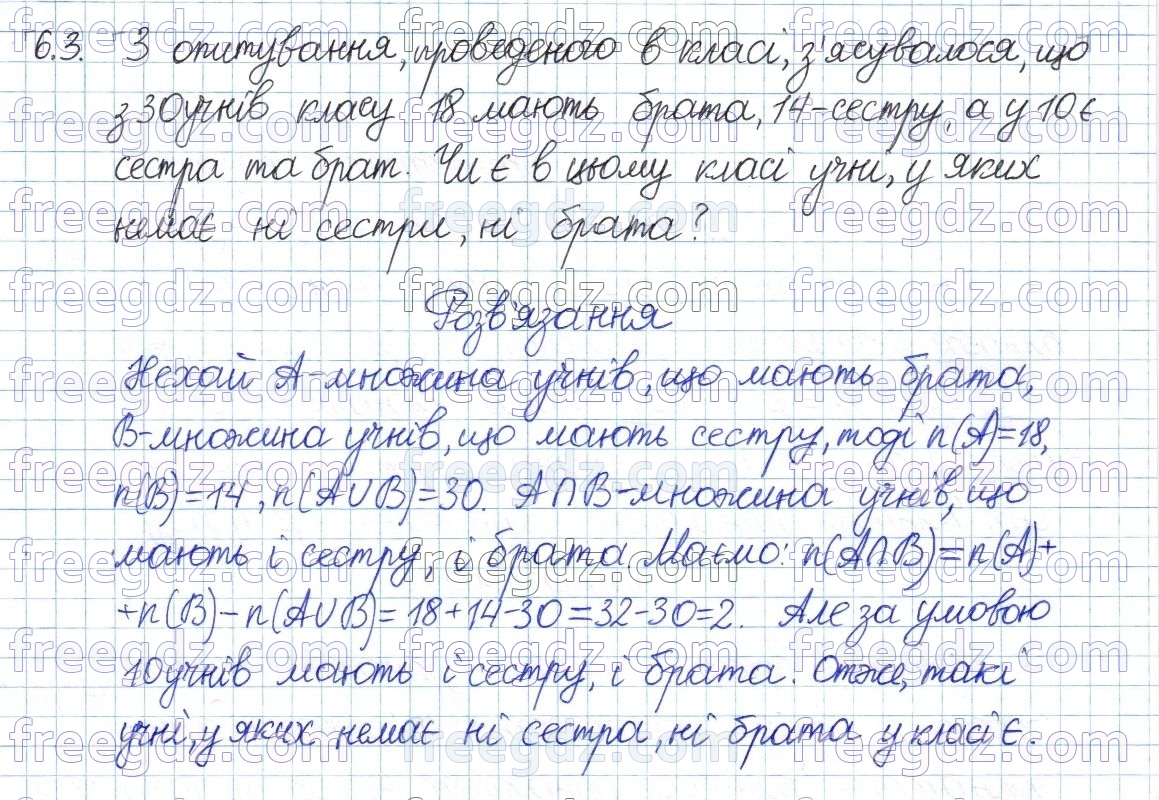 6.3. З опитування, проведеного в класі, з'ясувалося, що
з 30 учнів класу 18 мають брата, 14-сестру, а у 10 є
сестра та брат. Чи є в цьому класі учні, у яких
немає ні сестри, ні брата?
Розв'язання
Нехай А-множина учнів, що мають брата,
В-множина учнів, що мають сестру, тоді n(A)=18,
n(B)=14, n(A∪B)=30. A∩B-множина учнів, що
мають і сестру, і брата. Маємо: n(A∩B)=n(A)+
+n(B)-n(A∪B)=18+14-30=32-30=2. Але за умовою
10 учнів мають і сестру, і брата. Отже, такі
учні, у яких немає ні сестра, ні брата у класі є.
freegdz.com